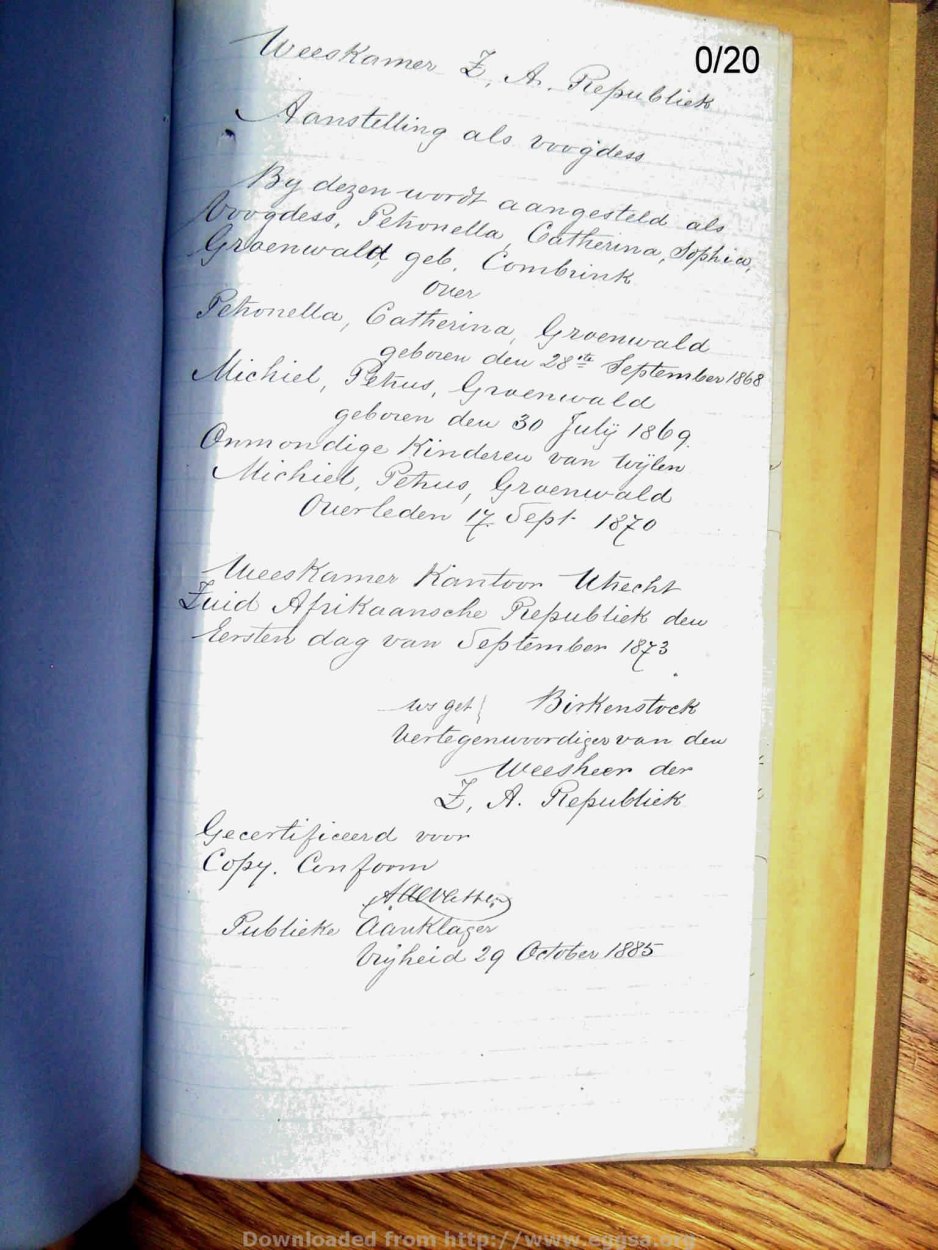 0/20
Weeskamer Z. A. Republiek
Aanstelling als voogdess
By dezen wordt aangesteld als
Voogdess, Petronella, Catherina, Sophia,
Groenewald, geb. Combrink
over
Petronella, Catherina, Groenwald
geboren den 28ste September 1868
Michiel, Petrus, Groenwald
geboren den 30 July 1869
Onmondige Kinderen van wijlen
Michiel, Petrus, Groenwald
Overleden 17 Sept 1870
Weeskamer Kantoor Utrecht
Zuid Afrikaansche Republiek den
Eersten dag van September 1873
get Birkenstock
Vertegenwoordiger van den
Weesheer der
Z. A. Republiek
Gecertificeerd voor
Copy. Conform
Publieke Aanklager
Vrijheid 29 October 1885
Downloaded from http://www.eggsa.org